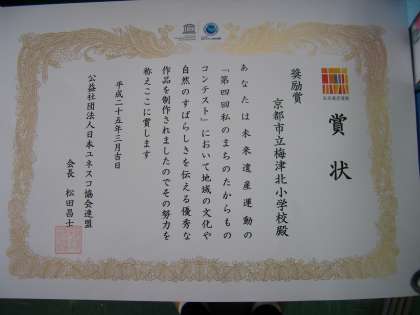 賞状
奨励賞
京都市立梅津北小学校殿
あなたは未来遺産運動の
「第四回私のまちのたからもの
コンテスト」において地域の文化や
自然のすばらしさを伝える優秀な
作品を制作されましたのでその努力を
称えここに賞します
平成二十五年三月吉日
公益社団法人日本ユネスコ協会連盟
会長 松田昌士